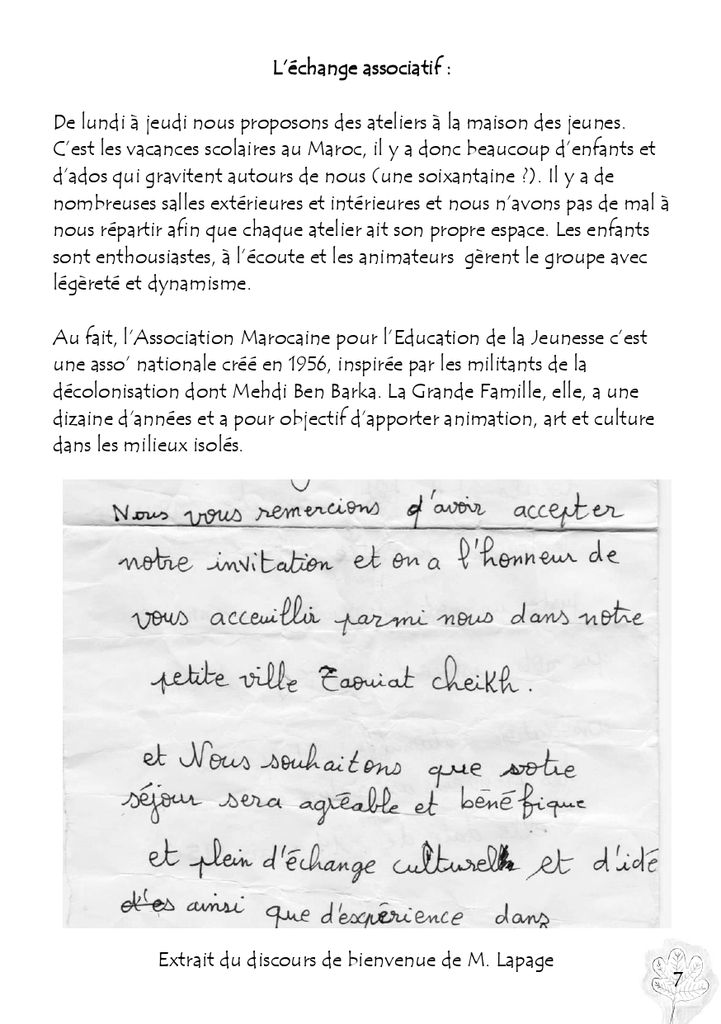 L'échange associatif :
De lundi à jeudi nous proposons des ateliers à la maison des jeunes.
C'est les vacances scolaires au Maroc, il y a donc beaucoup d'enfants et
d'ados qui gravitent autours de nous (une soixantaine ?). Il y a de
nombreuses salles extérieures et intérieures et nous n'avons pas de mal à
nous répartir afin que chaque atelier ait son propre espace. Les enfants
sont enthousiastes, à l'écoute et les animateurs gèrent le groupe avec
légèreté et dynamisme.
Au fait, l'Association Marocaine pour l'Education de la Jeunesse c'est
une asso' nationale créé en 1956, inspirée par les militants de la
décolonisation dont Mehdi Ben Barka. La Grande Famille, elle, a une
dizaine d'années et a pour objectif d'apporter animation, art et culture
dans les milieux isolés.
Nous vous remercions d'avoir accepter
notre invitation et on a l'honneur de
vous acceuillir parmi nous dans notre
petite ville Zaouiat cheikh.
et Nous souhaitons que votre
séjour sera agréable et bénéfique
et plein d'échange culturel et d'idé
es ainsi que d'expérience dans
Extrait du discours de bienvenue de M. Lapage
7